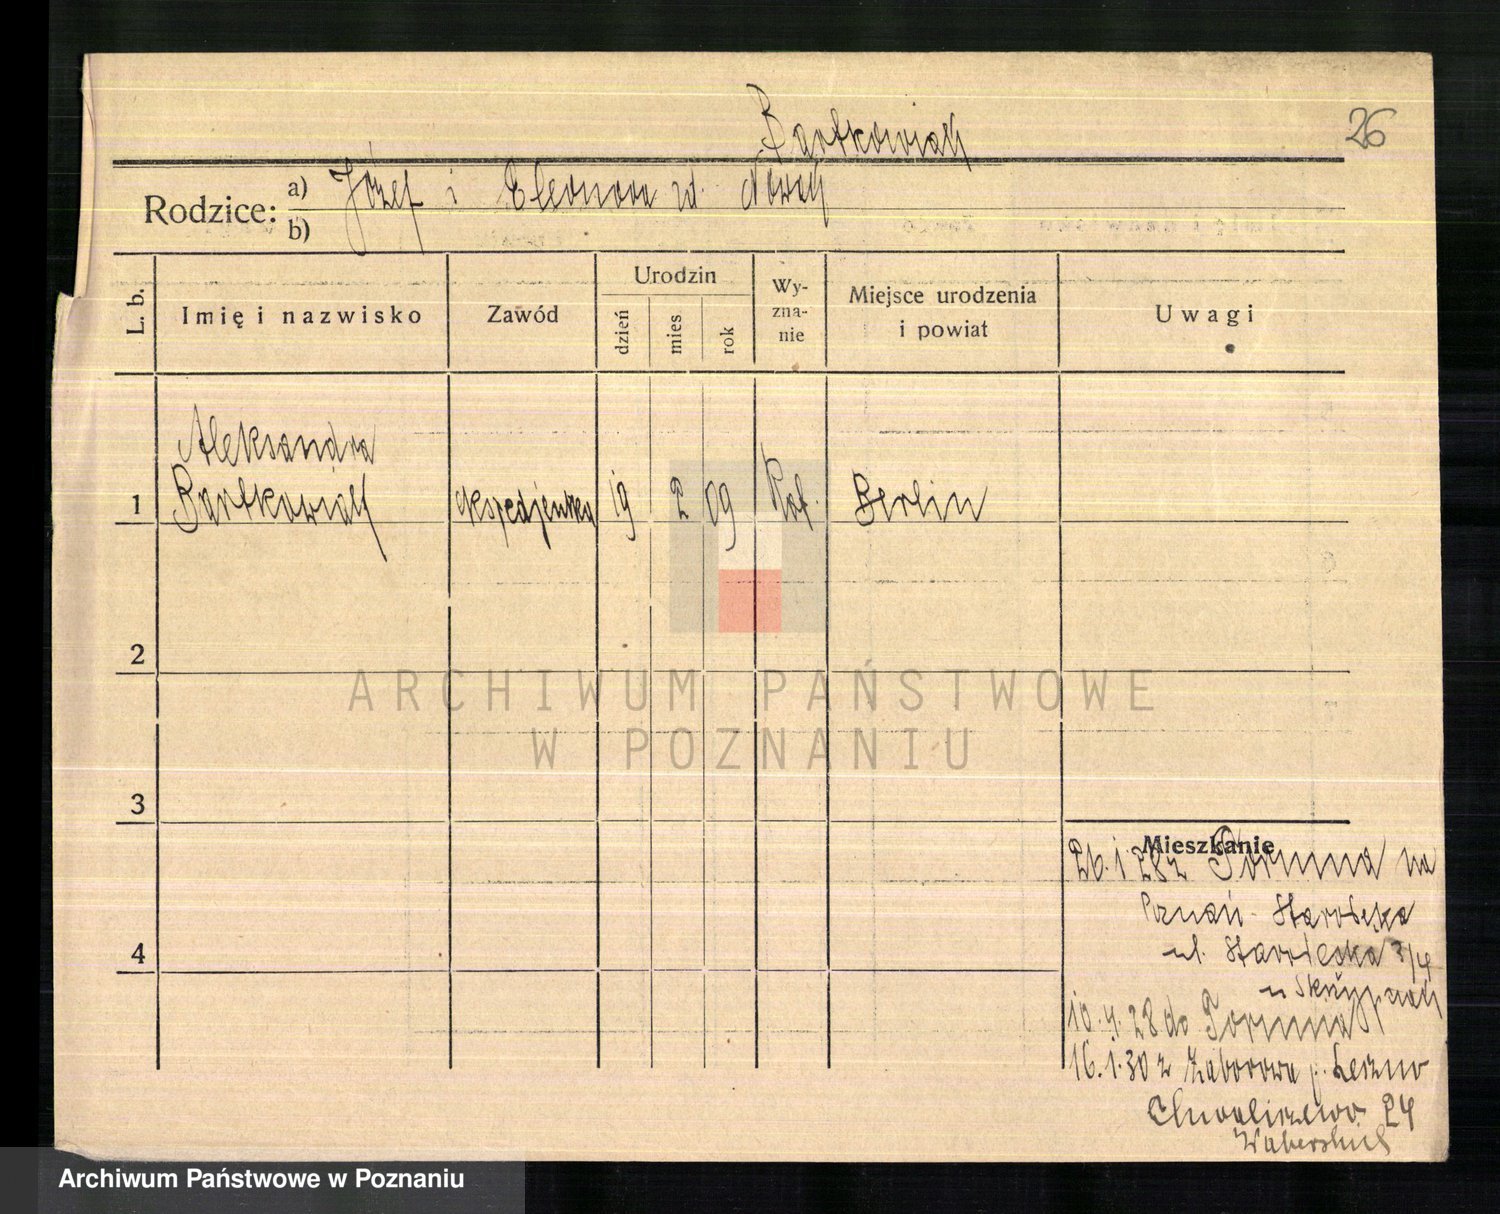 Bartkowiak
26
Rodzice: a) Józef i Eleonora ur. Nowak
b)
L. b.
Imię i nazwisko
Zawód
Urodzin
dzień
mies
rok
Wy-
zna-
nie
Miejsce urodzenia
i powiat
Uwagi
Aleksandra
1 Bartkowiak ekspedjentka 19 2 09 Kat. Berlin
2
ARCHIWUM PAŃSTWOWE
W POZNANIU
3
Mieszkanie
26.1.28 z Torunia na
Poznań - Starołęka
ul. Starołęcka 3/4
u Skrzypczak
10.4.28 do Torunia
16.1.30 z Zaborowa p. Leszno
Chwaliszewo 24
4
Archiwum Państwowe w Poznaniu